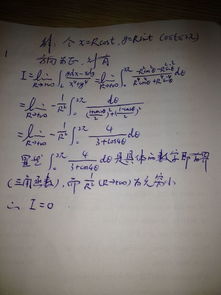 解：令 x=Rcost, y=Rsint (0≤t≤2π)
方向为正，则有
I = lim_{R→+∞} ∮_L (ydx-xdy)/(x⁴+y⁴) = lim_{R→+∞} ∫_0^{2π} (-R²sin²θ-R²cos²θ)/(R⁴cos⁴θ+R⁴sin⁴θ) dθ
= lim_{R→+∞} -1/R² ∫_0^{2π} dθ/(((1+cos2θ)/2)²+((1-cos2θ)/2)²)
= lim_{R→+∞} -1/R² ∫_0^{2π} 4/(3+cos4θ) dθ
∫_0^{2π} 4/(3+cos4θ) dθ 是具体的数字即有界
(三角函数), 而 1/R² (R→+∞) 为无穷小
∴ I=0